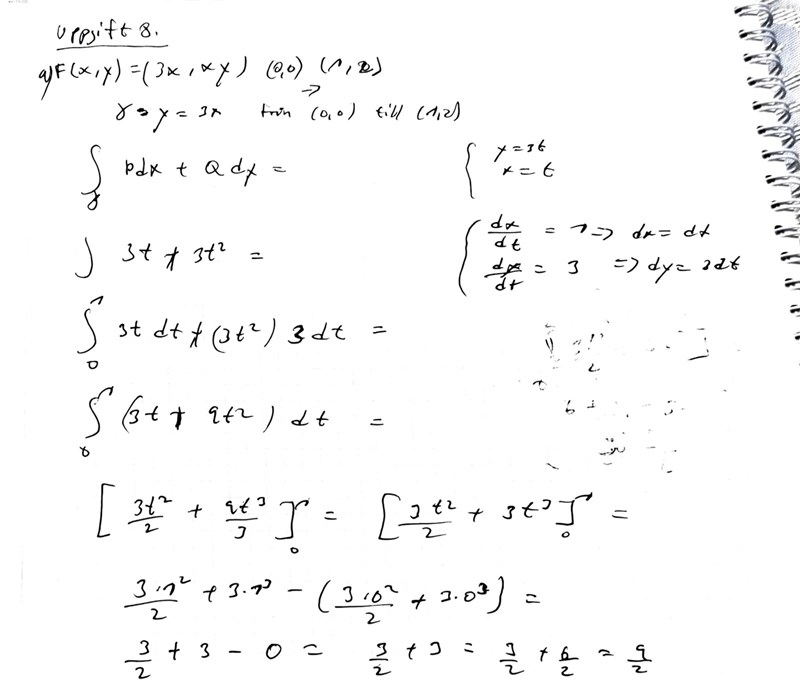 Uppgift 8.
a) F(x,y) = (3x, xy) (0,0) → (1,2)
γ → y = 3x från (0,0) till (1,2)
∫_γ Pdx + Qdy =
{ y = 3t
x = t
∫ 3t + 3t² =
{ dx/dt = 1 => dx = dt
dy/dt = 3 => dy = 3dt
∫_0^1 3t dt + (3t²) 3dt =
∫_0^1 (3t + 9t²) dt =
[3t²/2 + 9t³/3]_0^1 = [3t²/2 + 3t³]_0^1 =
3·1²/2 + 3·1³ - (3·0²/2 + 3·0³) =
3/2 + 3 - 0 = 3/2 + 3 = 3/2 + 6/2 = 9/2